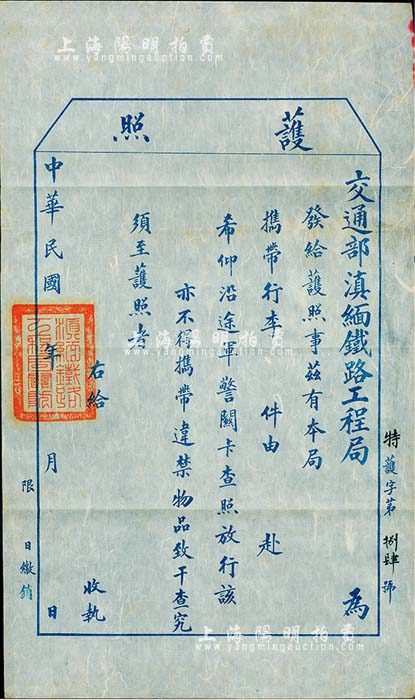 上海陽明拍賣
www.yangmingauction.com
護照
特護字第捌肆號
交通部滇緬鐵路工程局為
發給護照事茲有本局
攜帶行李　件由　赴
希仰沿途軍警關卡查照放行該
亦不得攜帶違禁物品致干查究
須至護照者
右給　收執
中華民國　年　月　日
限　日繳銷
上海陽明拍賣
www.yangmingauction.com